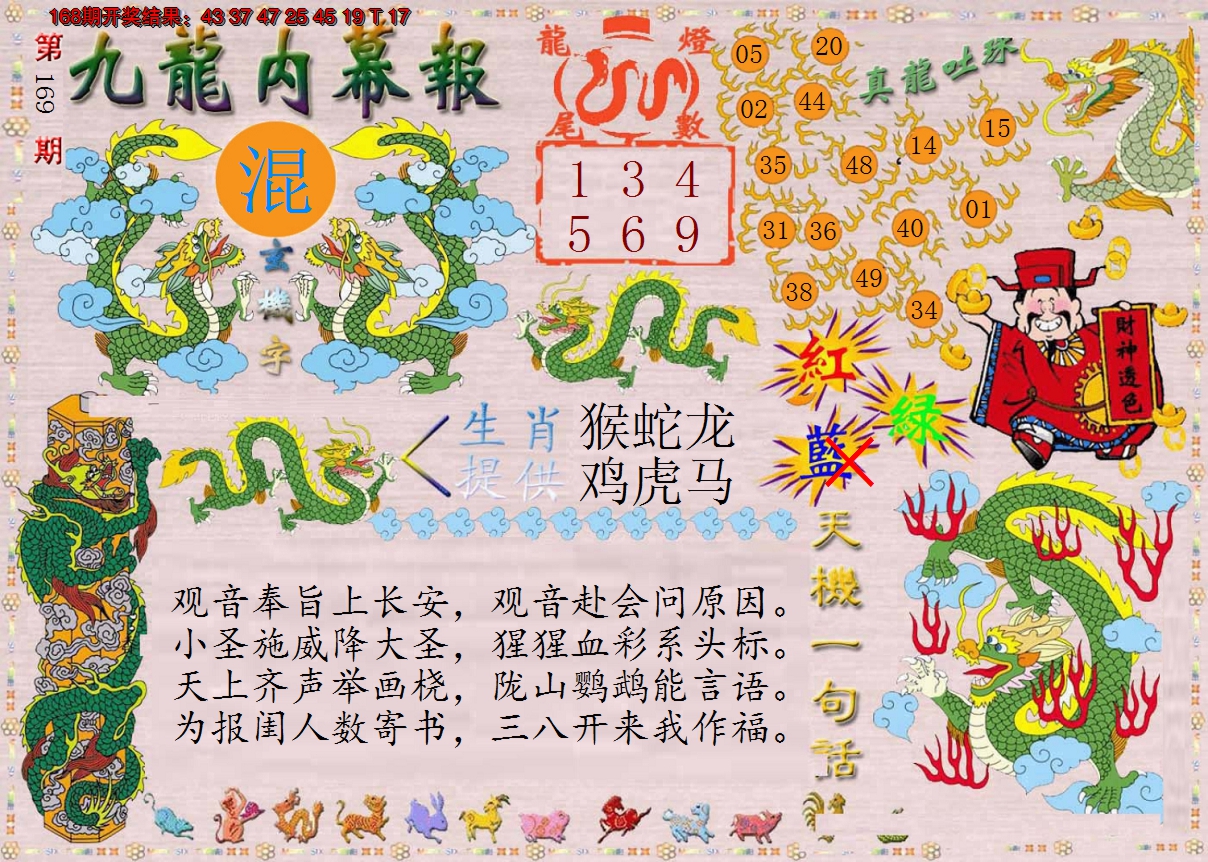 168期开奖结果：43 37 47 25 45 19 T 17
第169期
九龍内幕報
混
玄機字
龍燈尾數
1 3 4
5 6 9
真龍吐珠
05 20
02 44
35 48 14 15
31 36 40 01
38 49 34
財神透色
紅
綠
藍
生肖 猴蛇龙
提供 鸡虎马
天機一句话
观音奉旨上长安，观音赴会问原因。
小圣施威降大圣，猩猩血彩系头标。
天上齐声举画桡，陇山鹦鹉能言语。
为报闺人数寄书，三八开来我作福。